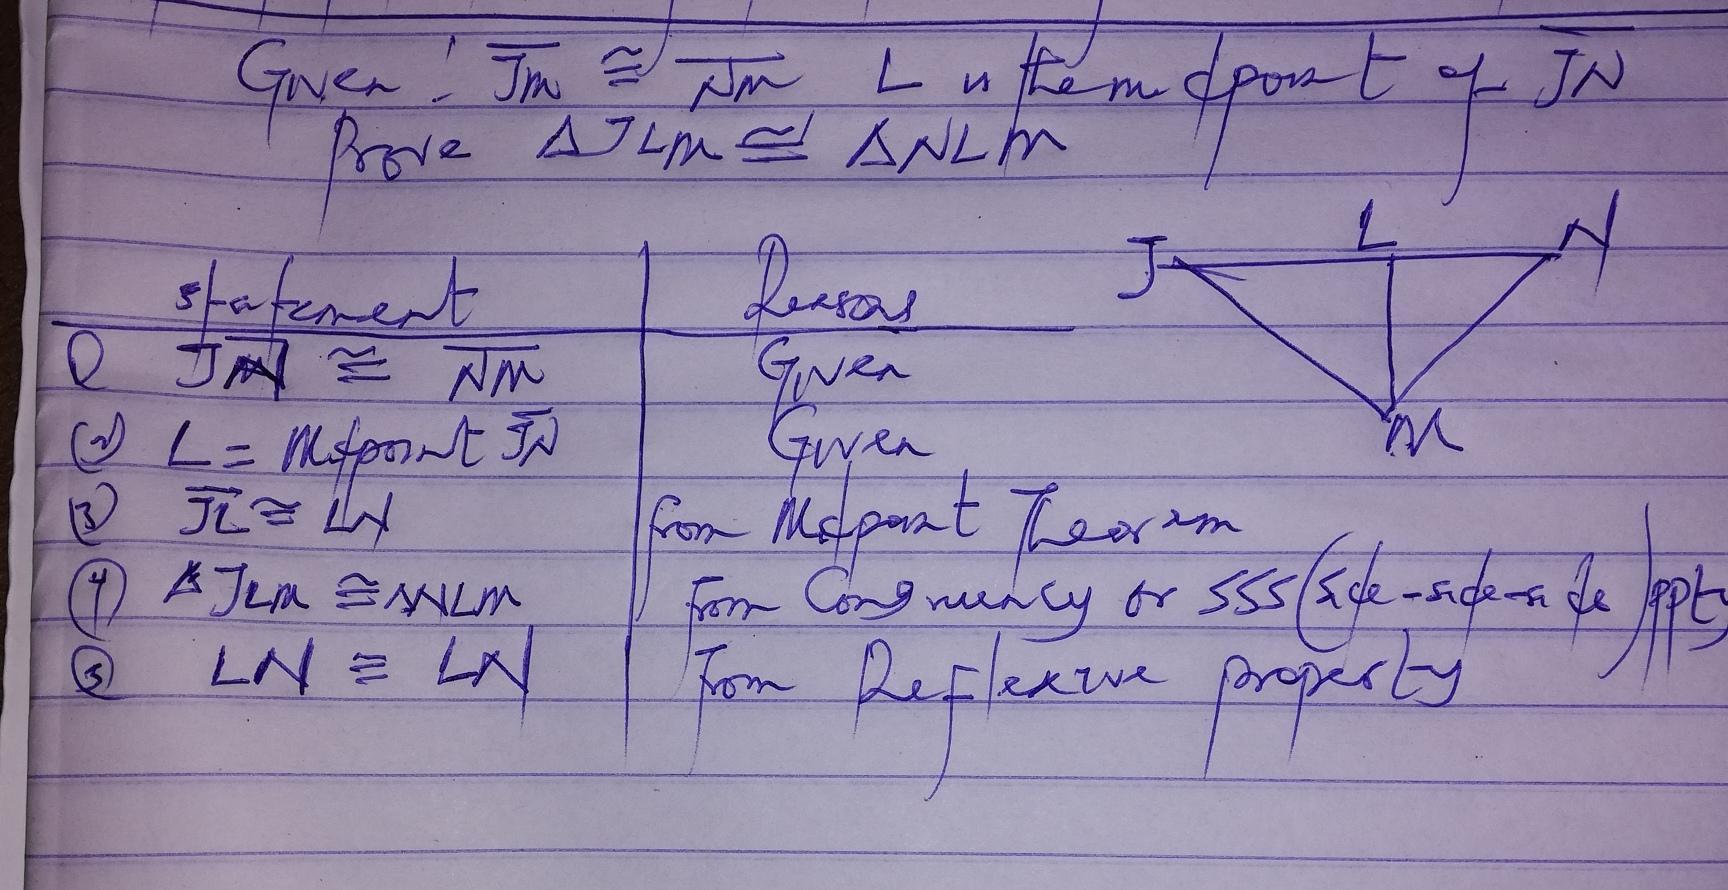 Given: J̅M̅ ≅ N̅M̅ L is the midpoint of J̅N̅
Prove ΔJLM ≅ ΔNLM
Statement Reasons
① J̅M̅ ≅ N̅M̅ Given
② L = Midpoint J̅N̅ Given
③ J̅L̅ ≅ LN from Midpoint Theorem
④ ΔJLM ≅ ΔNLM from Congruency or SSS (side-side-side) ppty
⑤ LN ≅ LN From Reflexive property
J L N
M